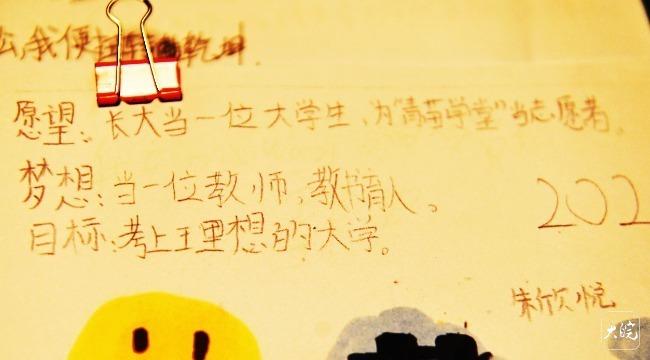 么,我便扭转乾坤.
愿望:长大当一位大学生,为"青苗学堂"当志愿者。
梦想:当一位教师,教书育人。
目标:考上理想的大学。
202
朱欣悦
大皖